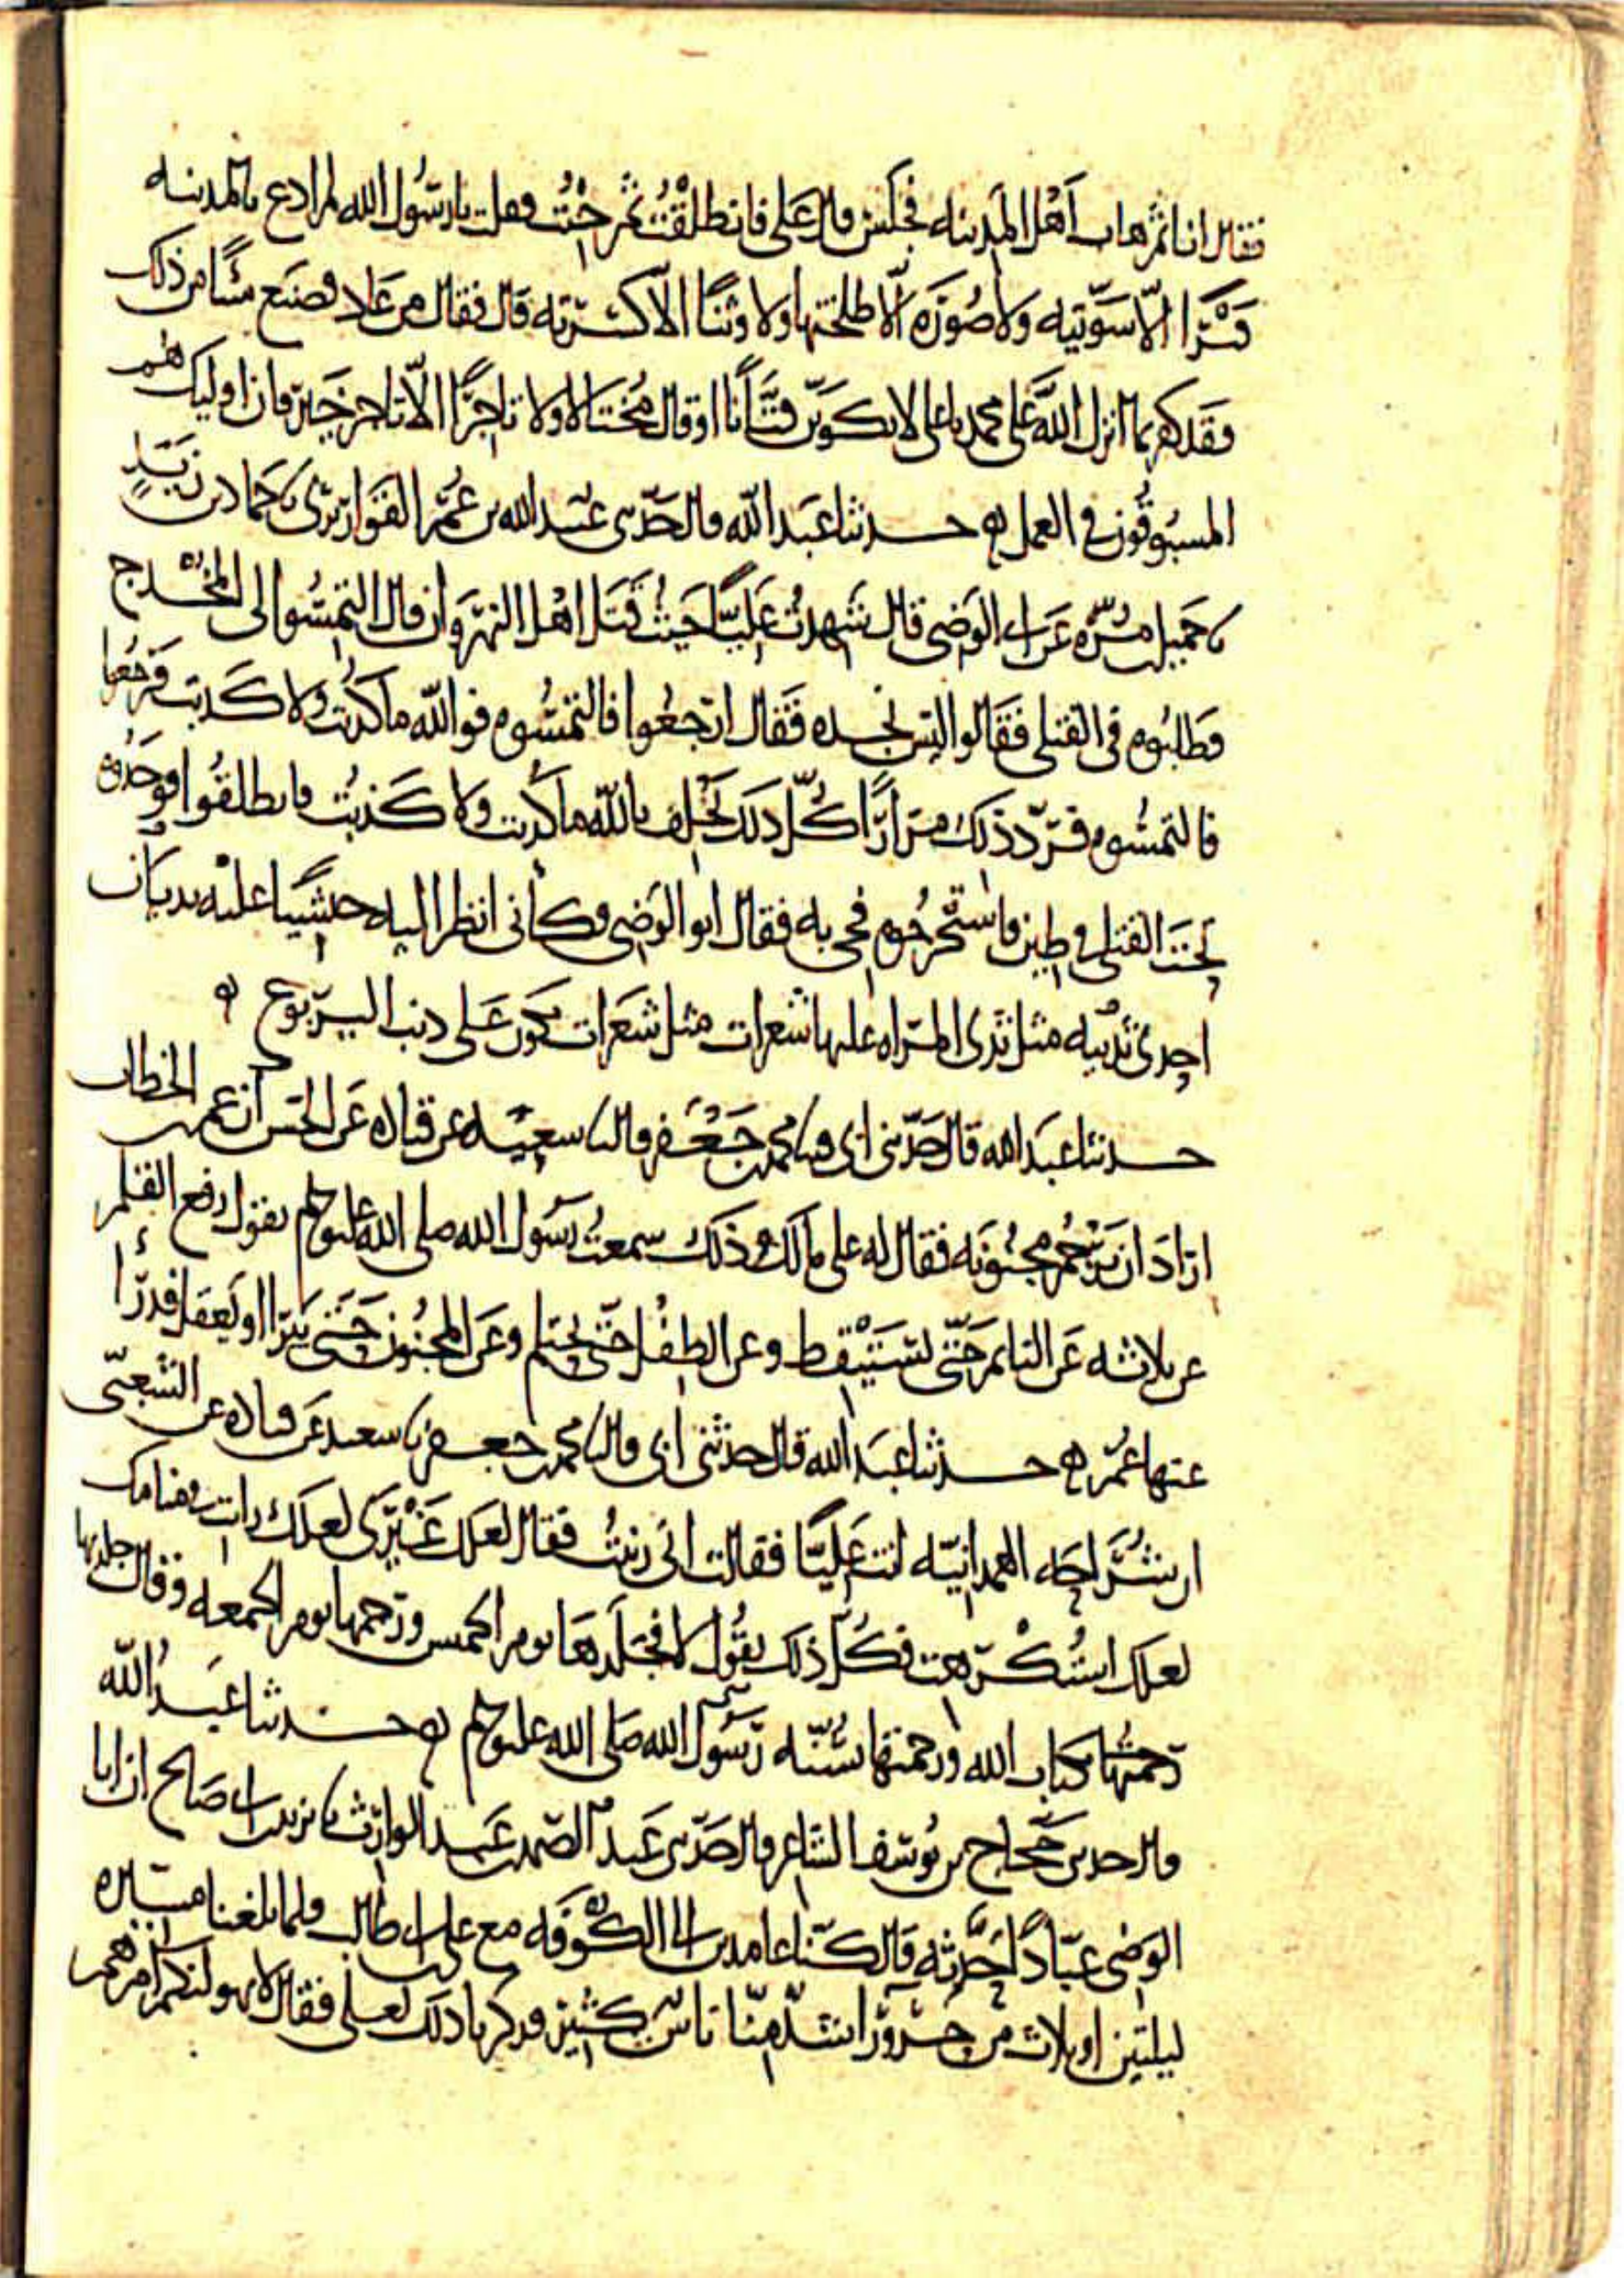 فقال انا ثم هاب اهل المدينه فجلس قال علي فانطلقت ثم جئت فقلت يا رسول الله لم ادع بالمدينه
قبرا الا سويته ولا صورة الا طلختها ولا وثنا الا كسرته قال فقال من عاد فصنع شيئا من ذلك
فقد كفر بما انزل الله على محمد يا علي لا تكونن فتانا او قال مختالا ولا تاجرا الا تاجر خير فان اوليك هم
المسبوقون في العمل حدثنا عبد الله قال حدثني عبيد الله بن عمر القواريري نا حماد بن زيد
نا جميل بن مره عن ابي الوضي قال شهدت عليا حيث قتل اهل النهروان قال التمسوا لي المخدج
فطلبوه في القتلى فقالوا ليس نجده فقال ارجعوا فالتمسوه فوالله ما كذبت ولا كذبت فرجعوا
فالتمسوه فردد ذلك مرارا كل ذلك يحلف بالله ما كذبت ولا كذبت فانطلقوا فوجدوه
تحت القتلى في طين فاستخرجوه فجي به فقال ابو الوضي فكاني انظر اليه حبشيا عليه ثديان
احدى ثدييه مثل ثدي المراه عليها شعرات مثل شعرات تكون على ذنب اليربوع
حدثنا عبد الله قال حدثني ابي نا محمد بن جعفر قال نا سعيد عن قتاده عن الحسن ان عمر بن الخطاب
اراد ان يرجم مجنونه فقال له علي ما لك ذلك سمعت رسول الله صلى الله عليه وسلم يقول رفع القلم
عن ثلاثه عن النايم حتى يستيقظ وعن الطفل حتى يحتلم وعن المجنون حتى يبرا او يعقل فدرا
عنها عمر حدثنا عبد الله قال حدثني ابي قال نا محمد بن جعفر نا سعيد عن قتاده عن الشعبي
ان شراحه الهمدانيه اتت عليا فقالت اني زنيت فقال لعلك غيري لعلك رايت في منامك
لعلك استكرهت فكل ذلك تقول لا فجلدها يوم الخميس ورجمها يوم الجمعه وقال جلدتها
بكتاب الله ورجمتها بسنه رسول الله صلى الله عليه وسلم حدثنا عبد الله
قال حدثني حجاج بن يوسف الشاعر قال حدثني عبد الصمد بن عبد الوارث نا يزيد بن ابي صالح ان ابا
الوضي عبادا حدثه قال كنا عامدين الى الكوفه مع علي بن ابي طالب فلما بلغنا مسيره
ليلتين او ثلاث من حرورا شذ منا ناس كثير فذكرنا ذلك لعلي فقال لا يهولنكم امرهم